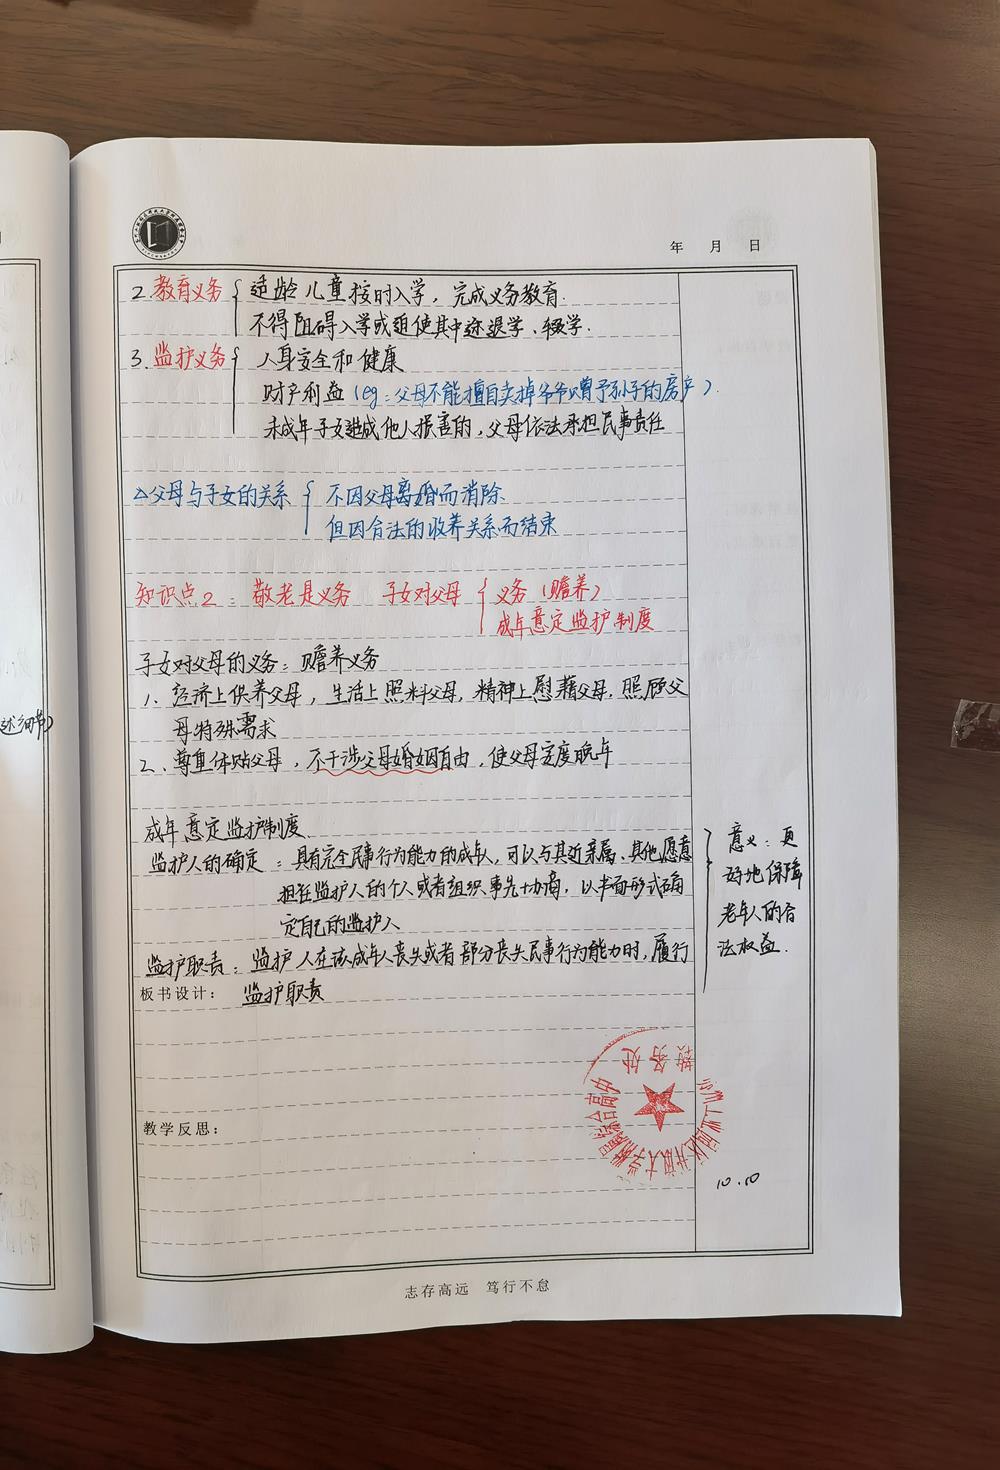 年 月 日
2.教育义务 { 适龄儿童按时入学，完成义务教育.
不得阻碍入学或迫使其中途退学、辍学.
3.监护义务 { 人身安全和健康
财产利益（eg：父母不能擅自卖掉爷爷赠予孙子的房产）.
未成年子女造成他人损害的，父母依法承担民事责任
△父母与子女的关系 { 不因父母离婚而消除
但因合法的收养关系而结束
知识点2：敬老是义务 子女对父母 { 义务（赡养）
成年意定监护制度
子女对父母的义务：赡养义务
1、经济上供养父母，生活上照料父母，精神上慰藉父母，照顾父
母特殊需求
2、尊重体贴父母，不干涉父母婚姻自由，使父母安度晚年
成年意定监护制度
监护人的确定：具有完全民事行为能力的成年人，可以与其近亲属、其他愿意
担任监护人的个人或者组织事先协商，以书面形式确
定自己的监护人
监护职责：监护人在该成年人丧失或者部分丧失民事行为能力时，履行
板书设计： 监护职责
} 意义：更
好地保障
老年人的合
法权益.
教学反思：
教务处
综合高中
10.10
志存高远 笃行不怠